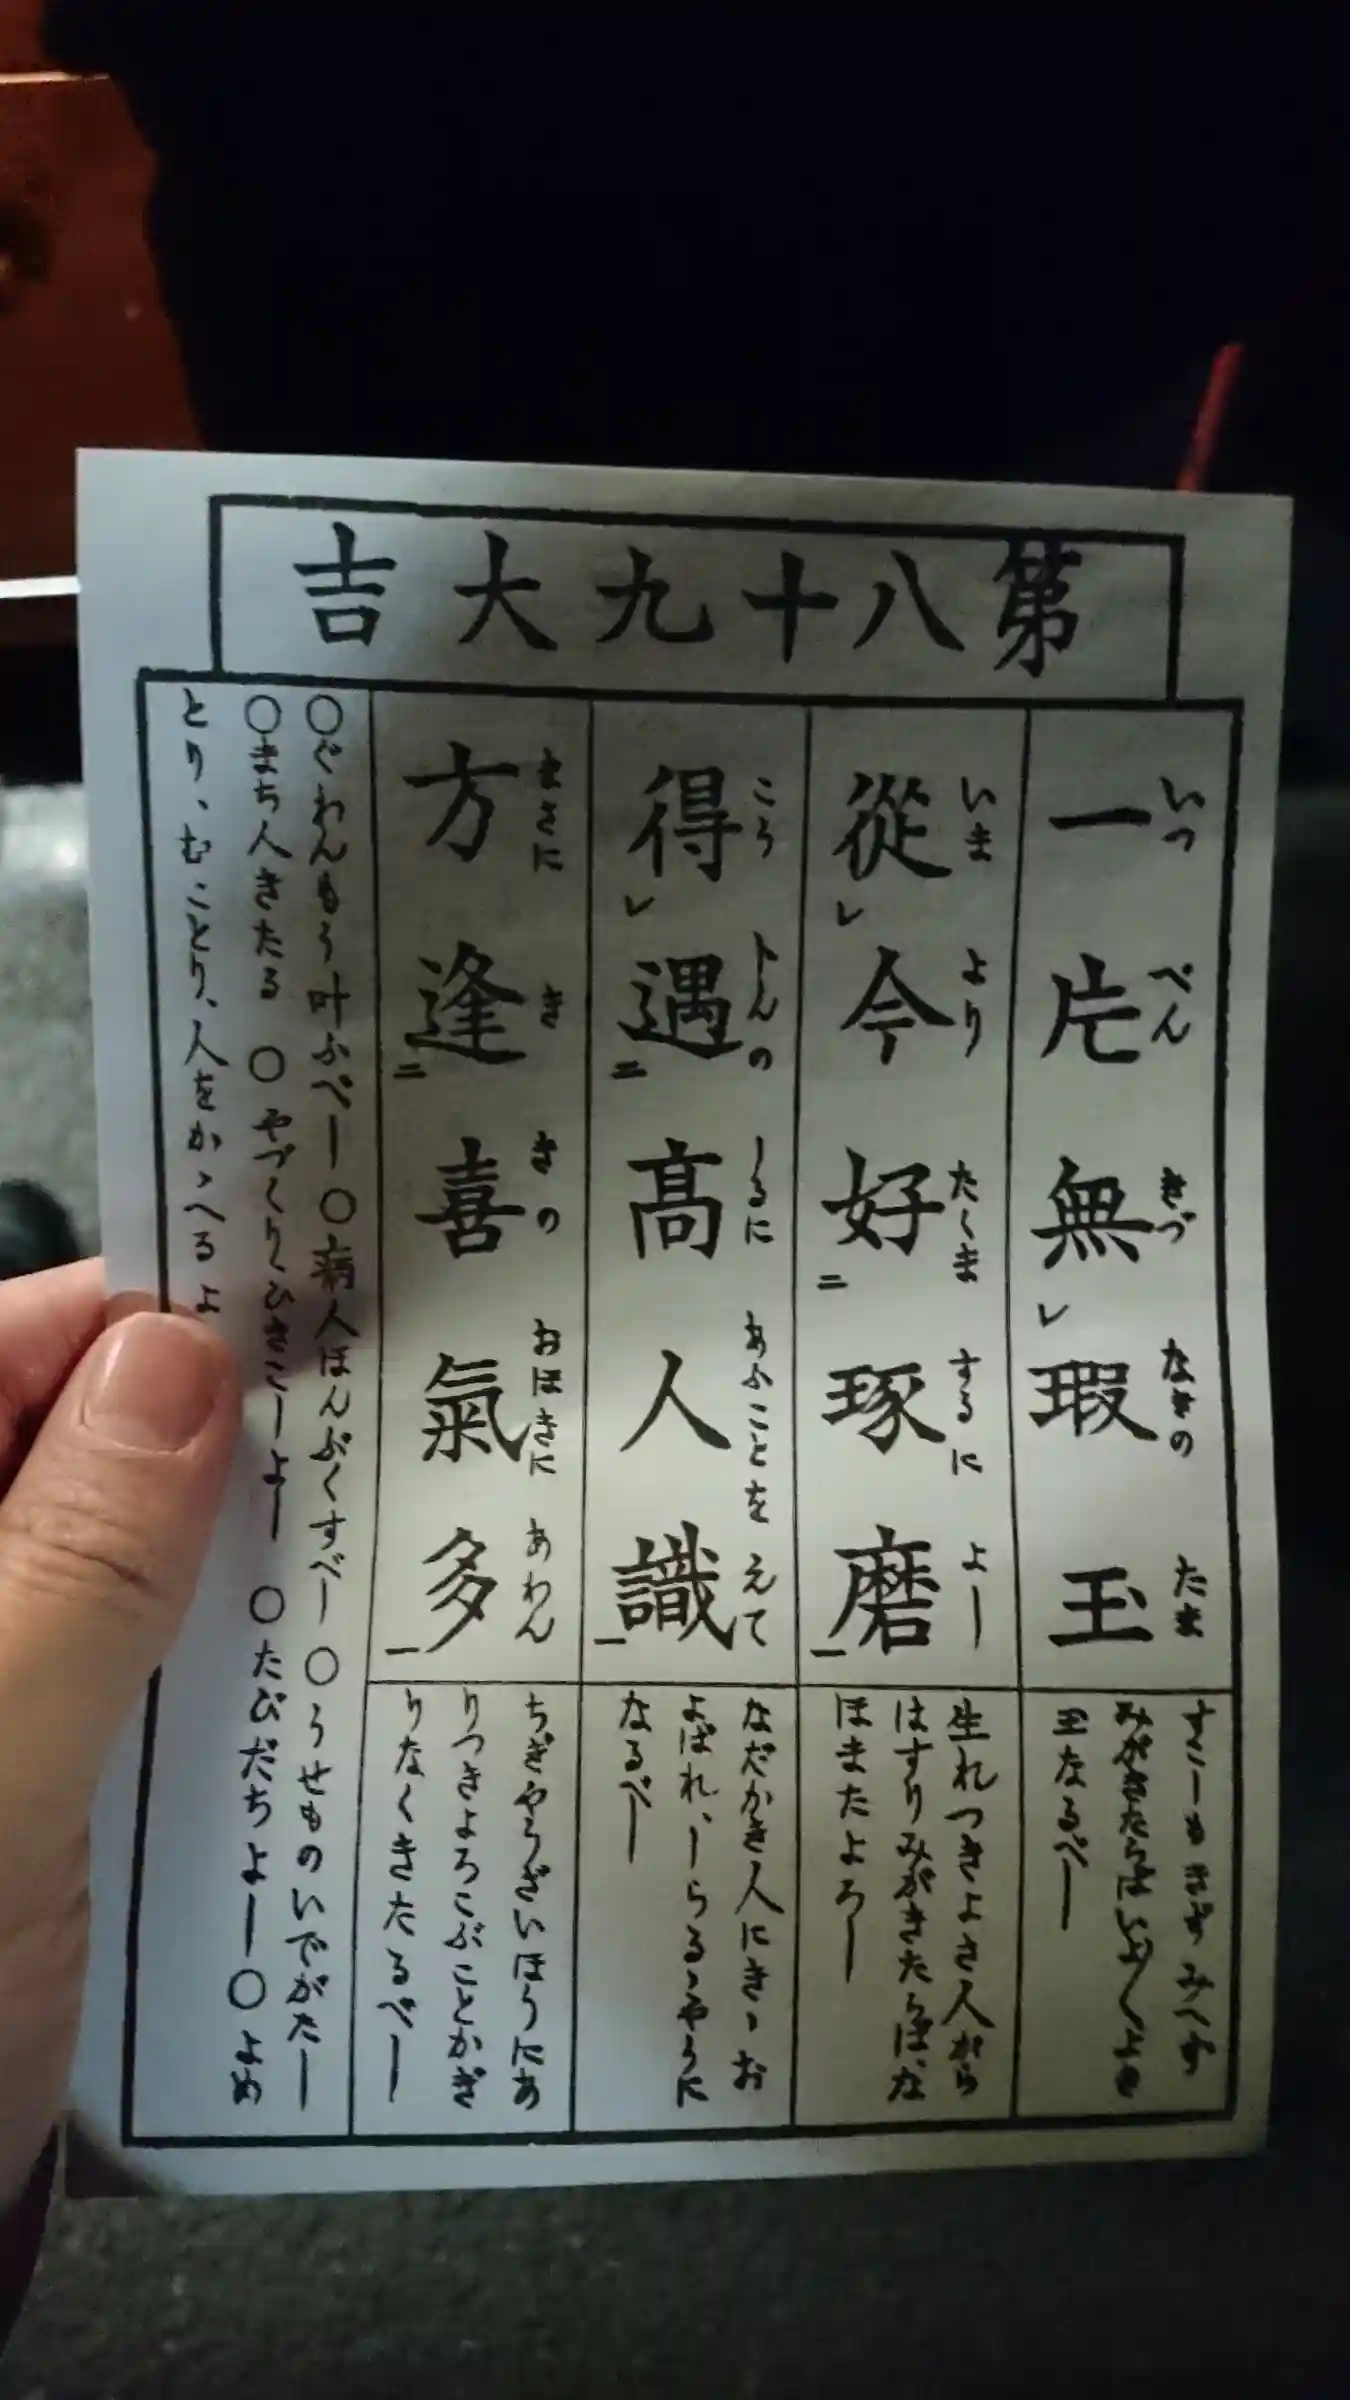 第八十九大吉
一片無レ瑕玉
いつ ぺん きづ なきの たま
すこしもきずなき
みがきたらばいよ〱よき
玉なるべし
從レ今好二琢磨一
いま より たくま するに よし
生れつきよき人がら
はすりみがきたらばな
ほまたよろし
得レ遇二高人識一
こう人の しるに あふことを えて
なだかき人にきゝお
よばれ、しらるゝやうに
なるべし
方逢二喜氣多一
まさに き きの おほきに あわん
ちぎやうざいほうにあ
りつきよろこぶことかぎ
りなくきたるべし
○ぐわんもう叶ふべし ○病人ほんぷくすべし ○うせものいでがたし
○まち人きたる ○やづくりひきこしよし ○たびだちよし ○よめ
とり、むことり、人をかゝへるよ